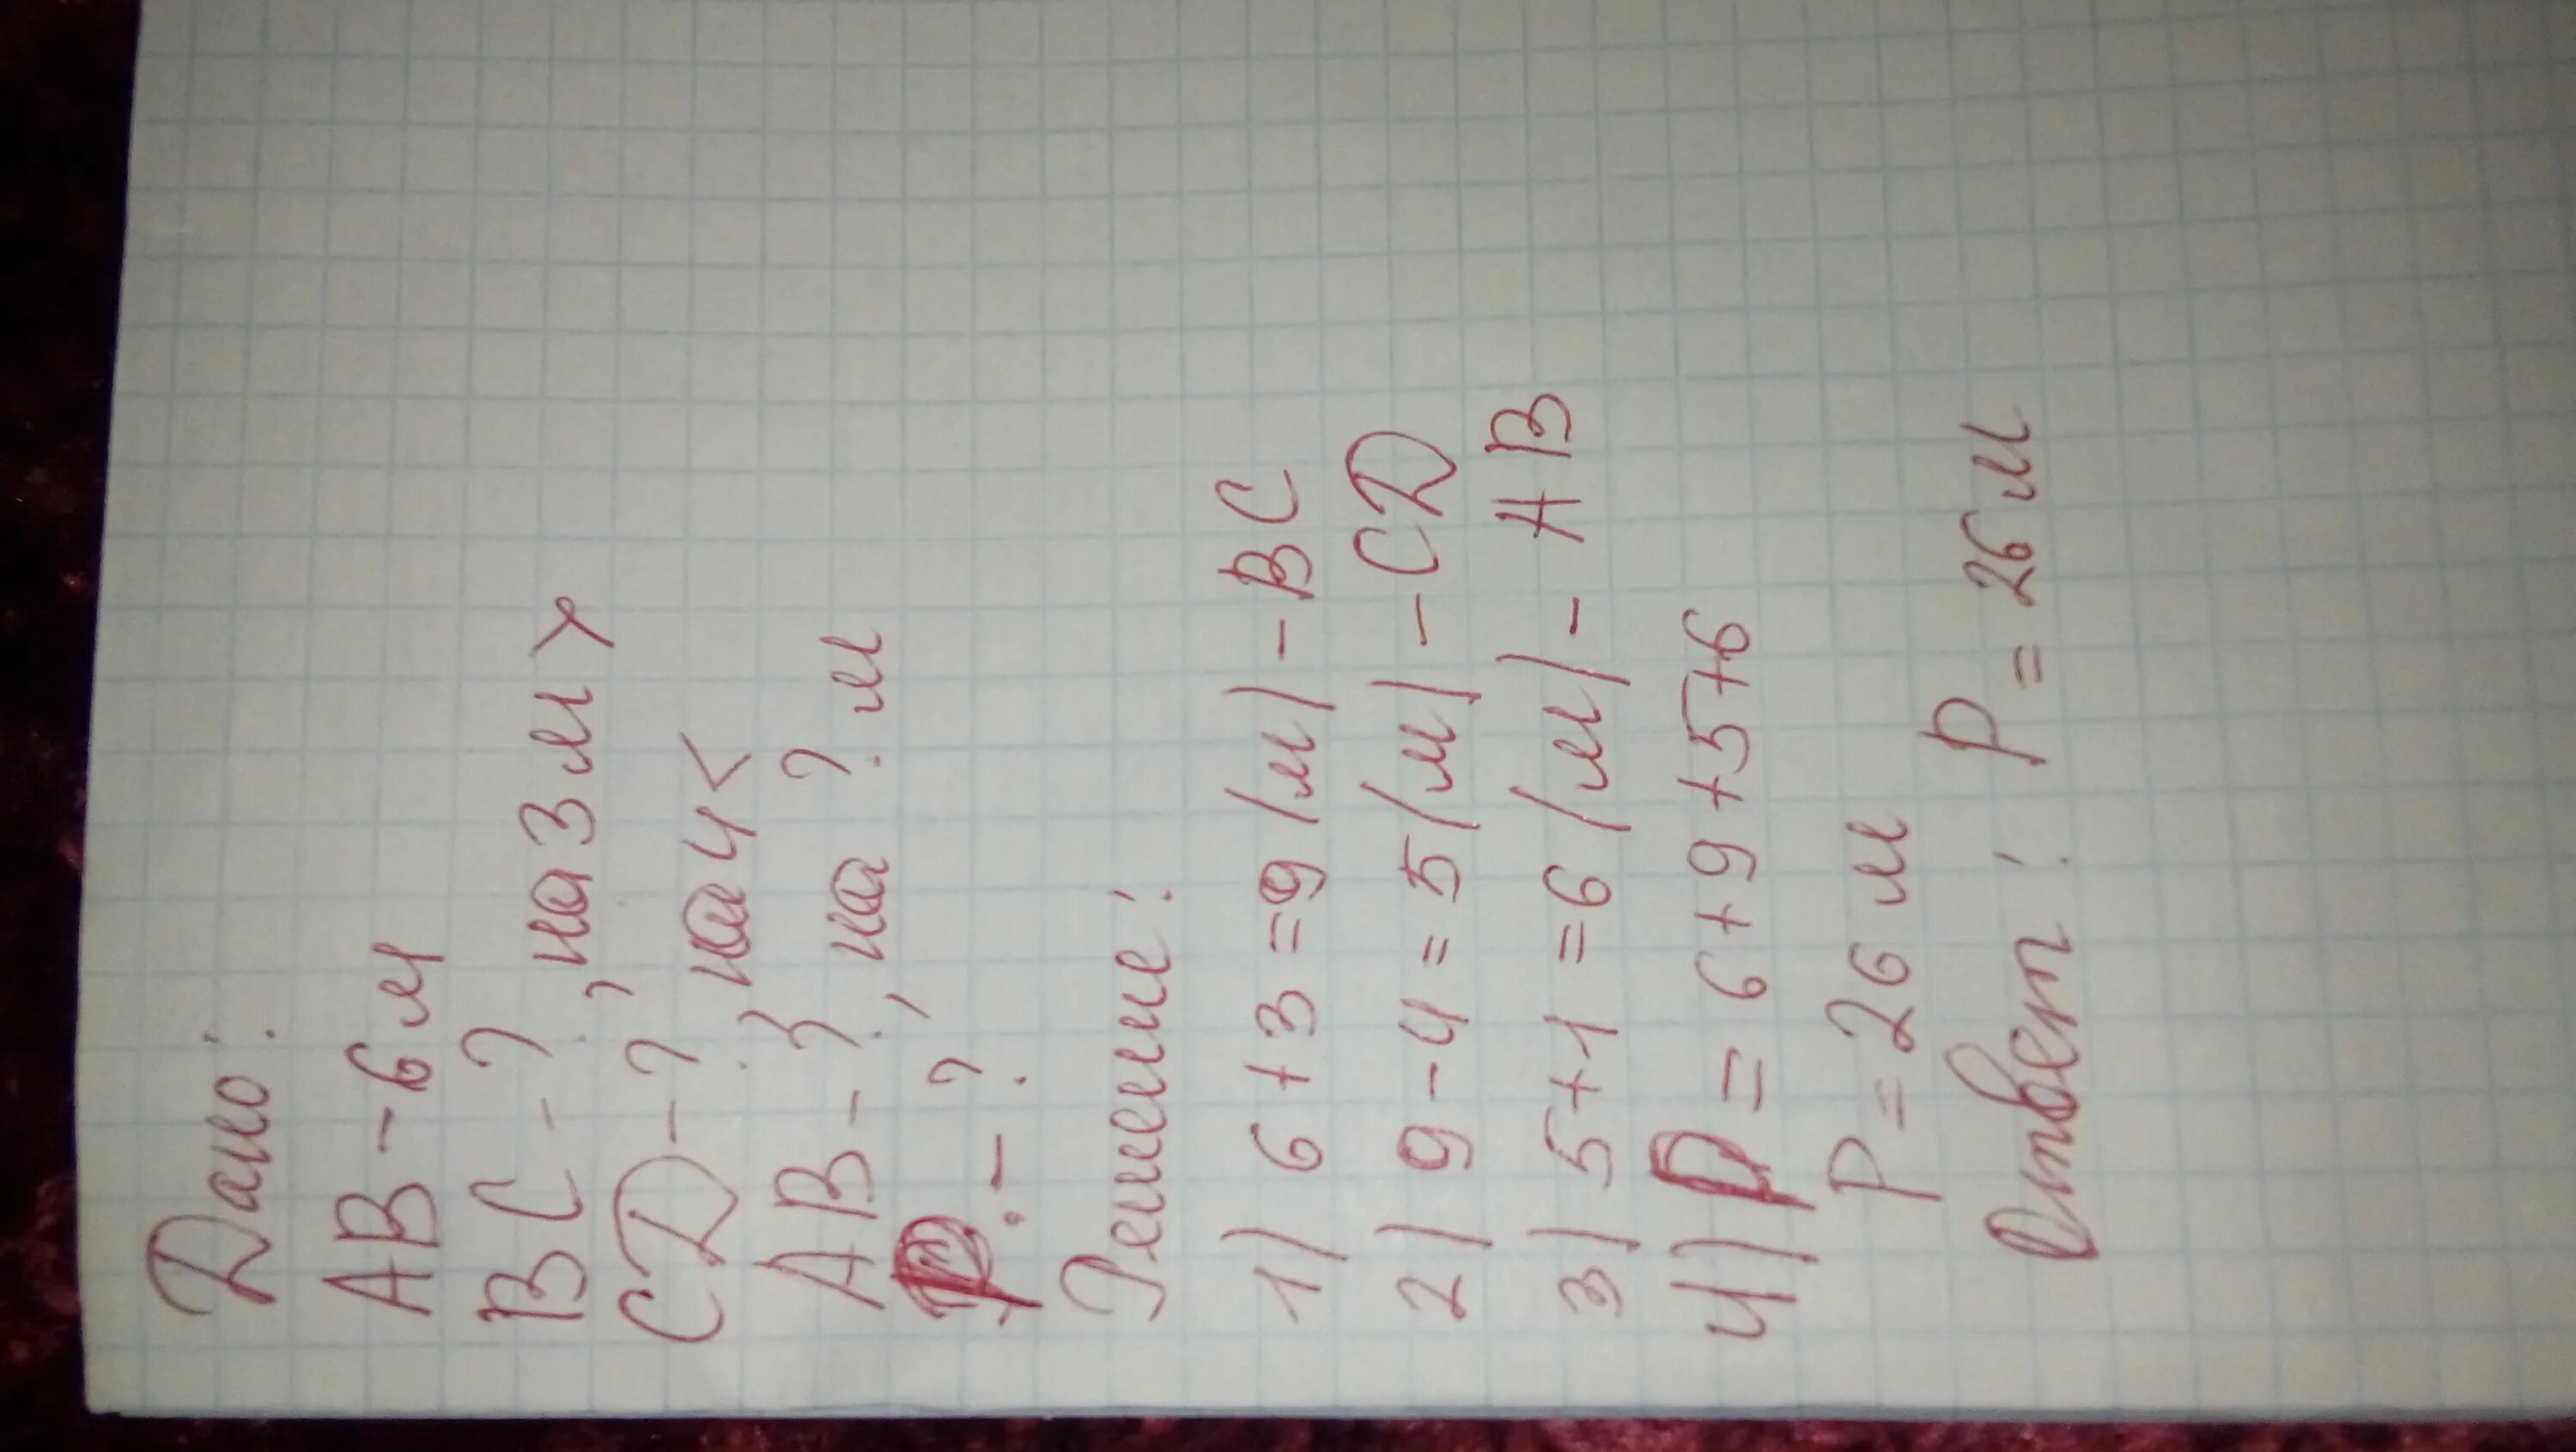 Дано:
AB - 6 м
BC - ?, на 3 м >
CD - ?, на 4 <
AB - ?, на ? м
P. - ?
Решение:
1) 6 + 3 = 9 (м) - BC
2) 9 - 4 = 5 (м) - CD
3) 5 + 1 = 6 (м) - AB
4) P = 6 + 9 + 5 + 6
P = 26 м
Ответ: P = 26 м